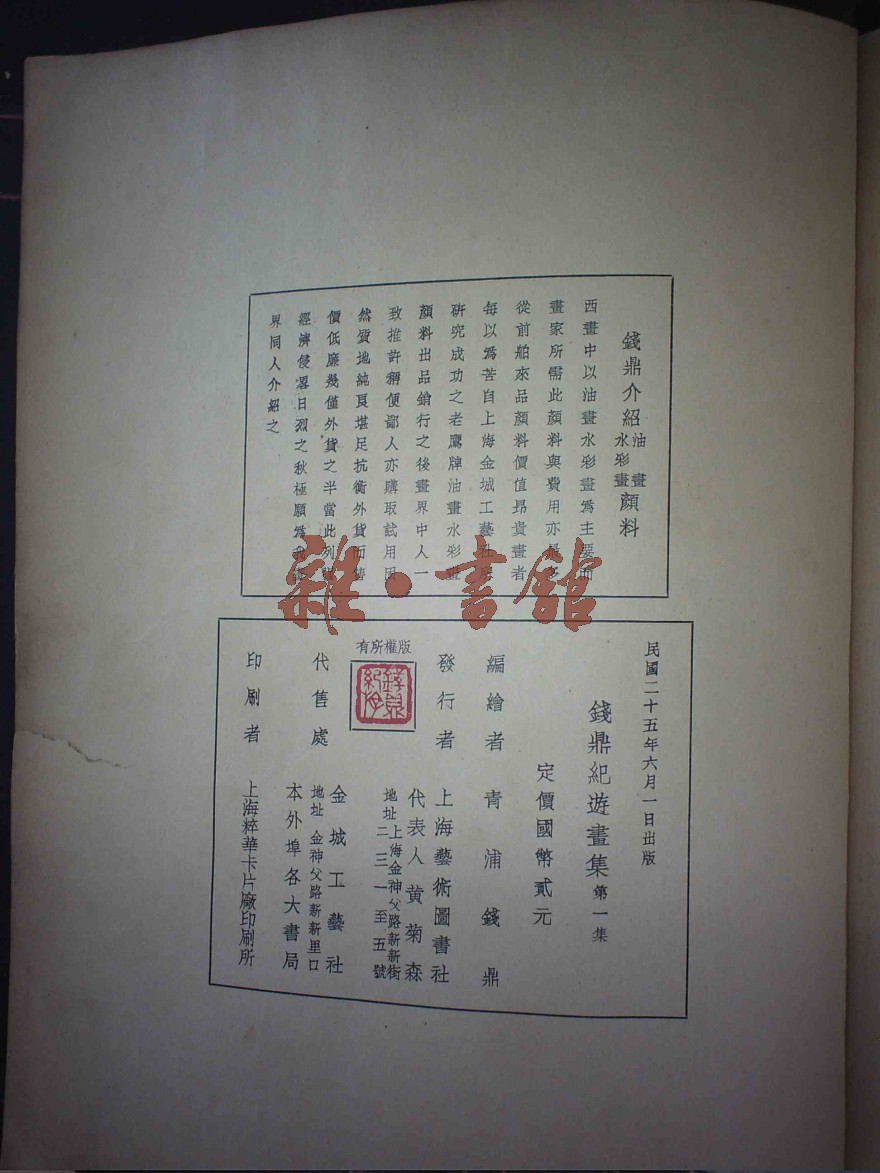 錢鼎介紹油畫水彩畫顏料
西畫中以油畫水彩畫爲主要而
畫家所需此顏料與費用亦
從前舶來品顏料價值昂貴畫者
每以爲苦自上海金城工藝社所
硏究成功之老鷹牌油畫水彩畫
顏料出品銷行之後畫界中人一
致推許稱便鄙人亦購取試用固
然質地純良堪足抗衡外貨而售
價低廉幾僅外貨之半當此列強
經濟侵畧日烈之秋極願爲我畫
界同人介紹之
雜·書館
民國二十五年六月一日出版
錢鼎紀遊畫集 第一集
定價國幣貳元
編繪者 青浦錢鼎
發行者 上海藝術圖書社
代表人 黄菊森
地址 上海金神父路新新街二三一至五號
有所權版
錢鼎紀游
代售處 金城工藝社
地址 金神父路新新里口
本外埠各大書局
印刷者 上海粹華卡片廠印刷所